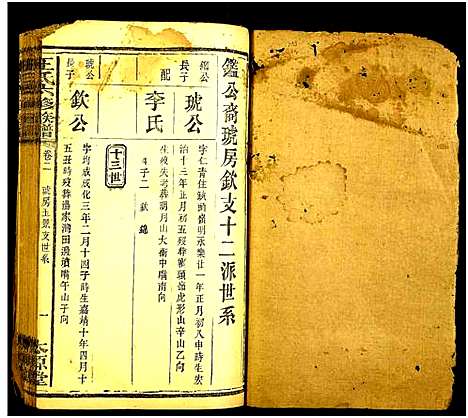 鑑公裔琥房欽支十二派世系
鑑公
長子
琥公
字仁青住鉄頭嶺明永樂廿一年正月初八申時生宏
治十三年正月初五歿葬獅頭嶺虎形山辛山乙向
配
李氏
生歿失考葬明月山大衝中嘴南向
子二 欽 鐩
十三世
琥公
長子
欽公
字均威成化三年二月十四子時生嘉靖十年四月十
五丑時歿葬過家灣田瀼濱嘴午山子向
王氏六修族譜
卷二
琥房上景支世系
一
太原堂